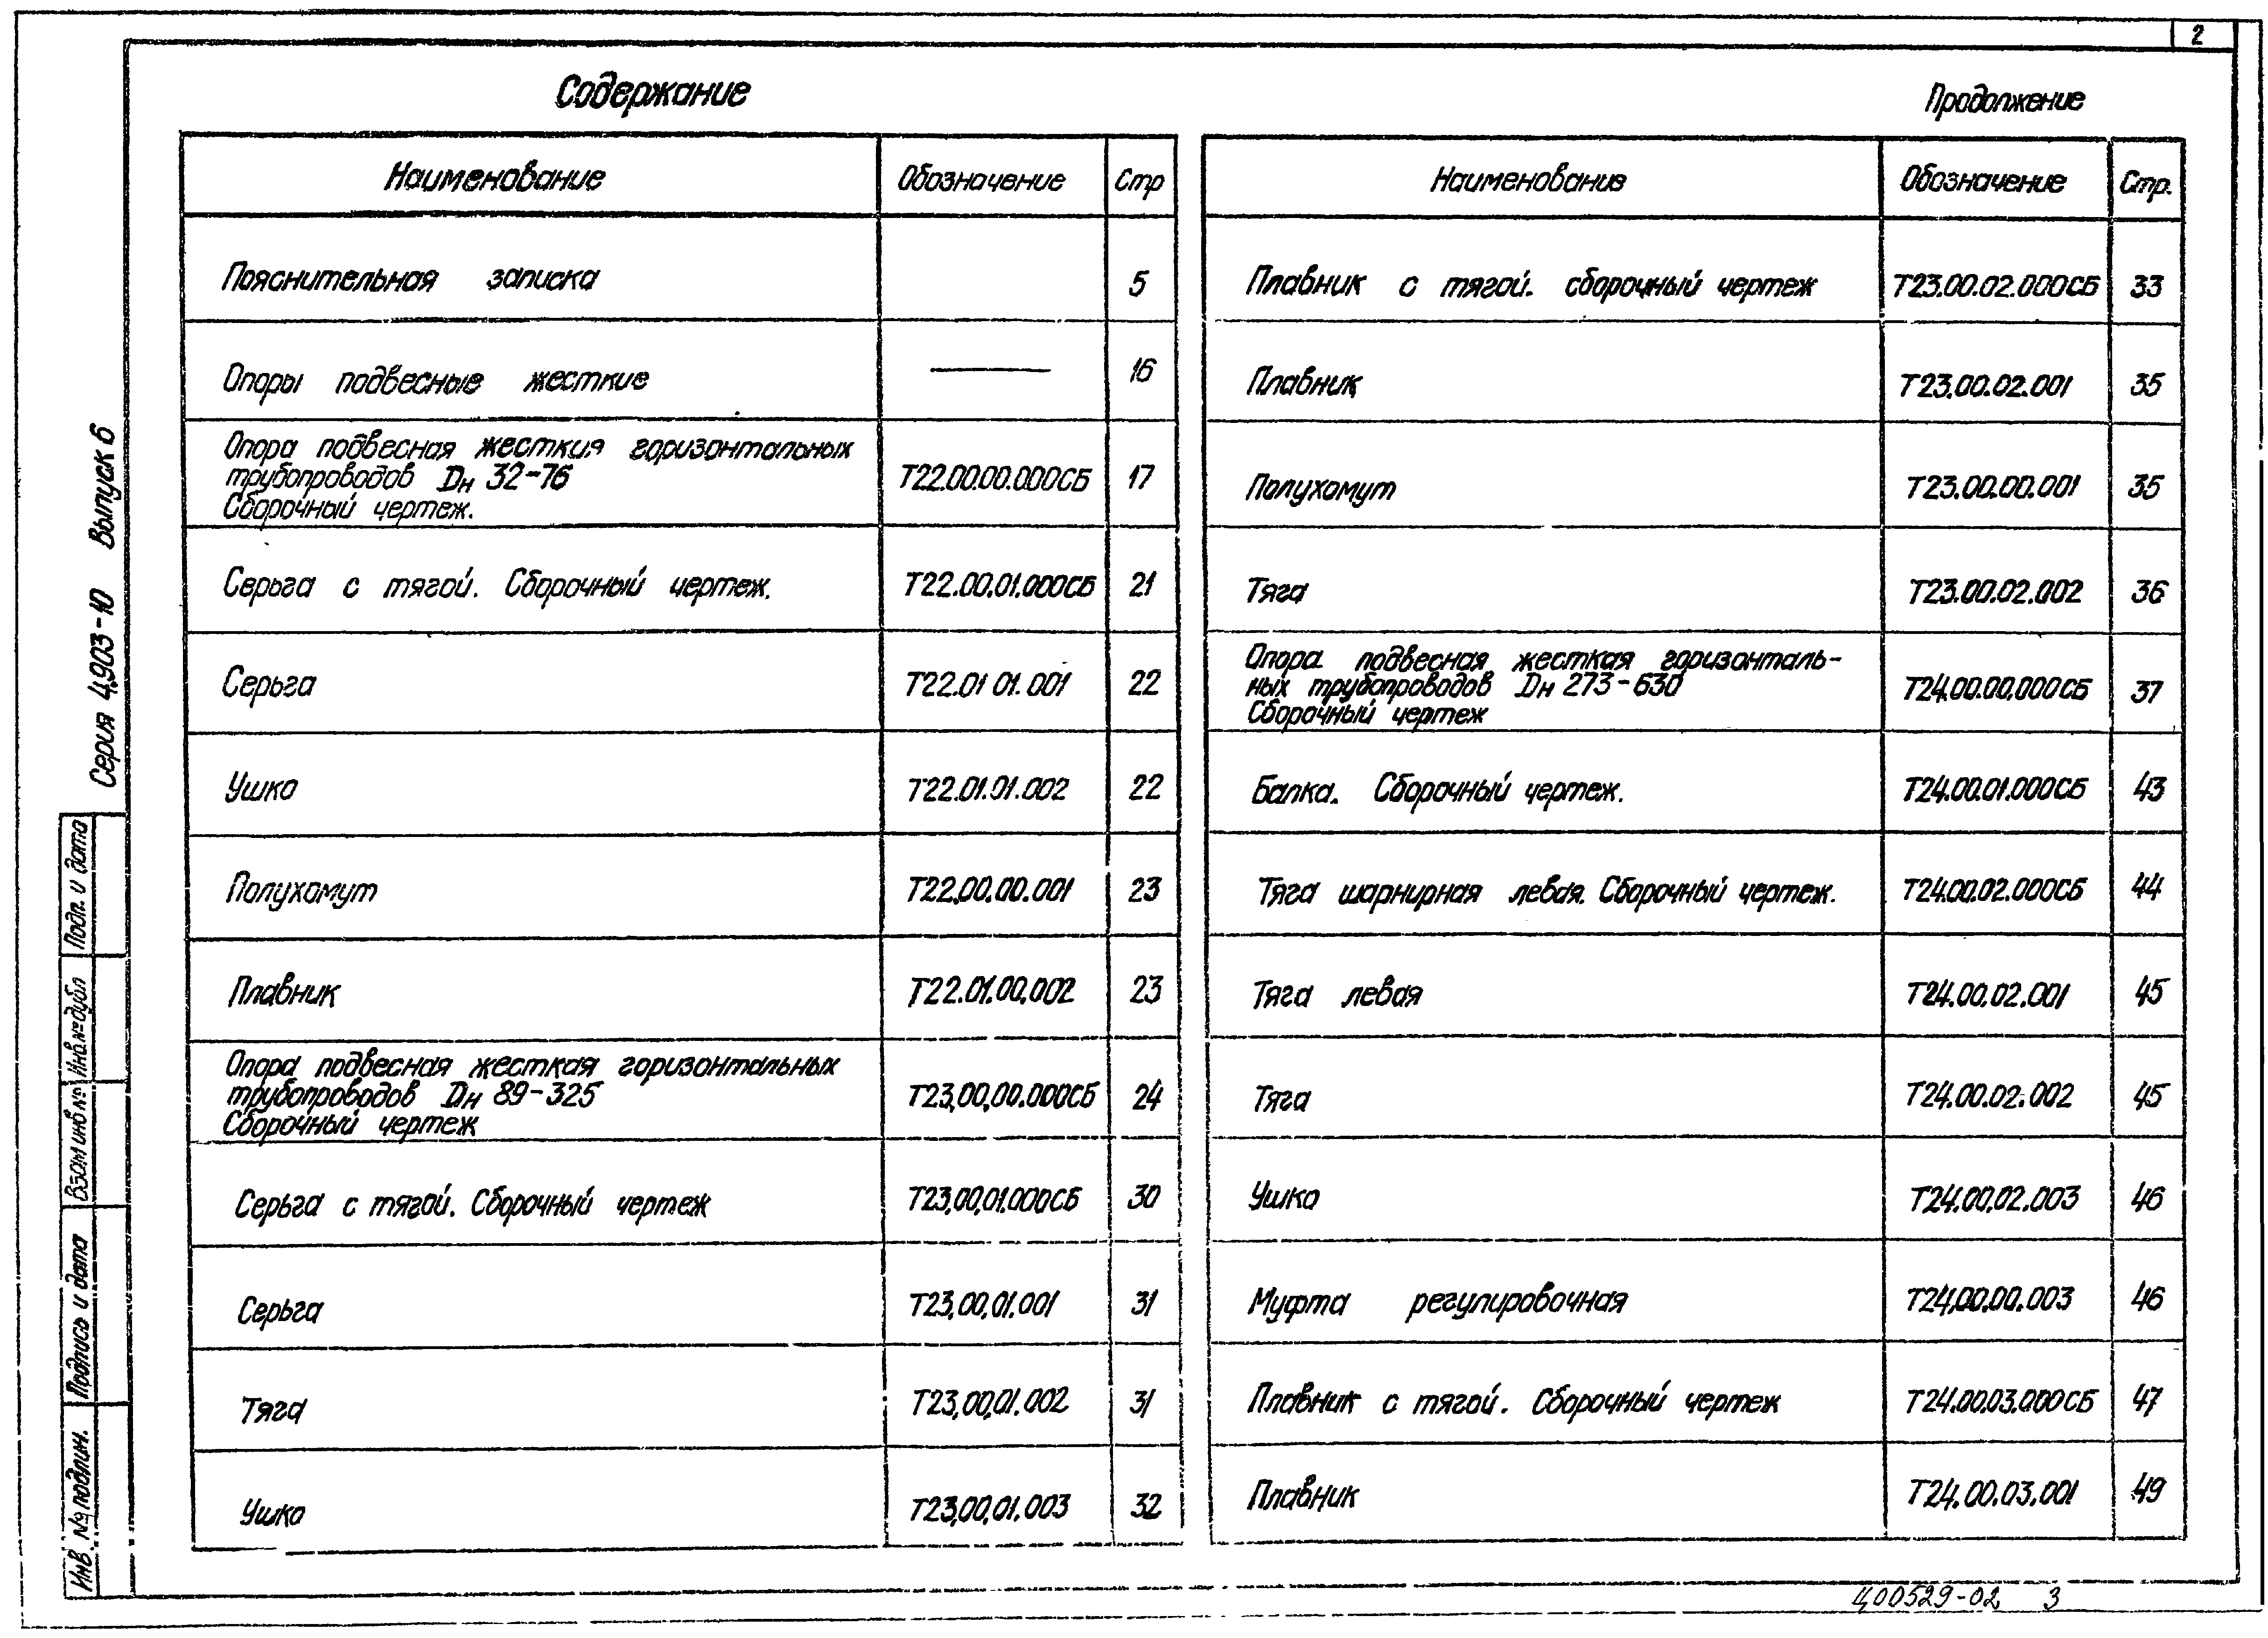 2
Содержание
Наименование Обозначение Стр
Пояснительная записка 5
Опоры подвесные жесткие — 16
Опора подвесная жесткия горизонтальных
трубопроводов Dн 32-76
Сборочный чертеж. Т22.00.00.000СБ 17
Серьга с тягой. Сборочный чертеж. Т22.00.01.000СБ 21
Серьга Т22.01 01.001 22
Ушко Т22.01.01.002 22
Полухомут Т22.00.00.001 23
Плавник Т22.01.00.002 23
Опора подвесная жесткая горизонтальных
трубопроводов Dн 89-325
Сборочный чертеж Т23.00.00.000СБ 24
Серьга с тягой. Сборочный чертеж Т23.00.01.000СБ 30
Серьга Т23.00.01.001 31
Тяга Т23.00.01.002 31
Ушко Т23.00.01.003 32
Продолжение
Наименование Обозначение Стр.
Плавник с тягой. сборочный чертеж Т23.00.02.000СБ 33
Плавник Т23.00.02.001 35
Полухомут Т23.00.00.001 35
Тяга Т23.00.02.002 36
Опора подвесная жесткая горизонталь-
ных трубопроводов Dн 273-630
Сборочный чертеж Т24.00.00.000СБ 37
Балка. Сборочный чертеж. Т24.00.01.000СБ 43
Тяга шарнирная левая. Сборочный чертеж. Т24.00.02.000СБ 44
Тяга левая Т24.00.02.001 45
Тяга Т24.00.02.002 45
Ушко Т24.00.02.003 46
Муфта регулировочная Т24.00.00.003 46
Плавник с тягой. Сборочный чертеж Т24.00.03.000СБ 47
Плавник Т24.00.03.001 49
Серия 4.903-10 Выпуск 6
Подп. и дата
Инв.№ дубл
Взам инв №
Подпись и дата
Инв № подлин.
400529-02 3